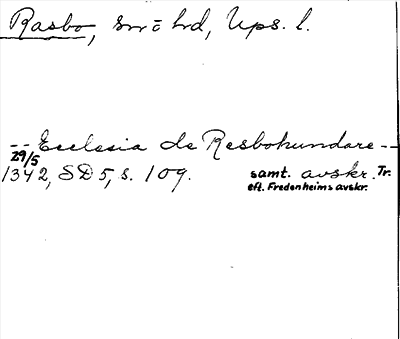 Rasbo, sn o hd, Ups. l.
-- Ecclesia de Resbohundare --
29/5
1342, SD 5, s. 109. samt. avskr. Tr.
eft. Fredenheims avskr.